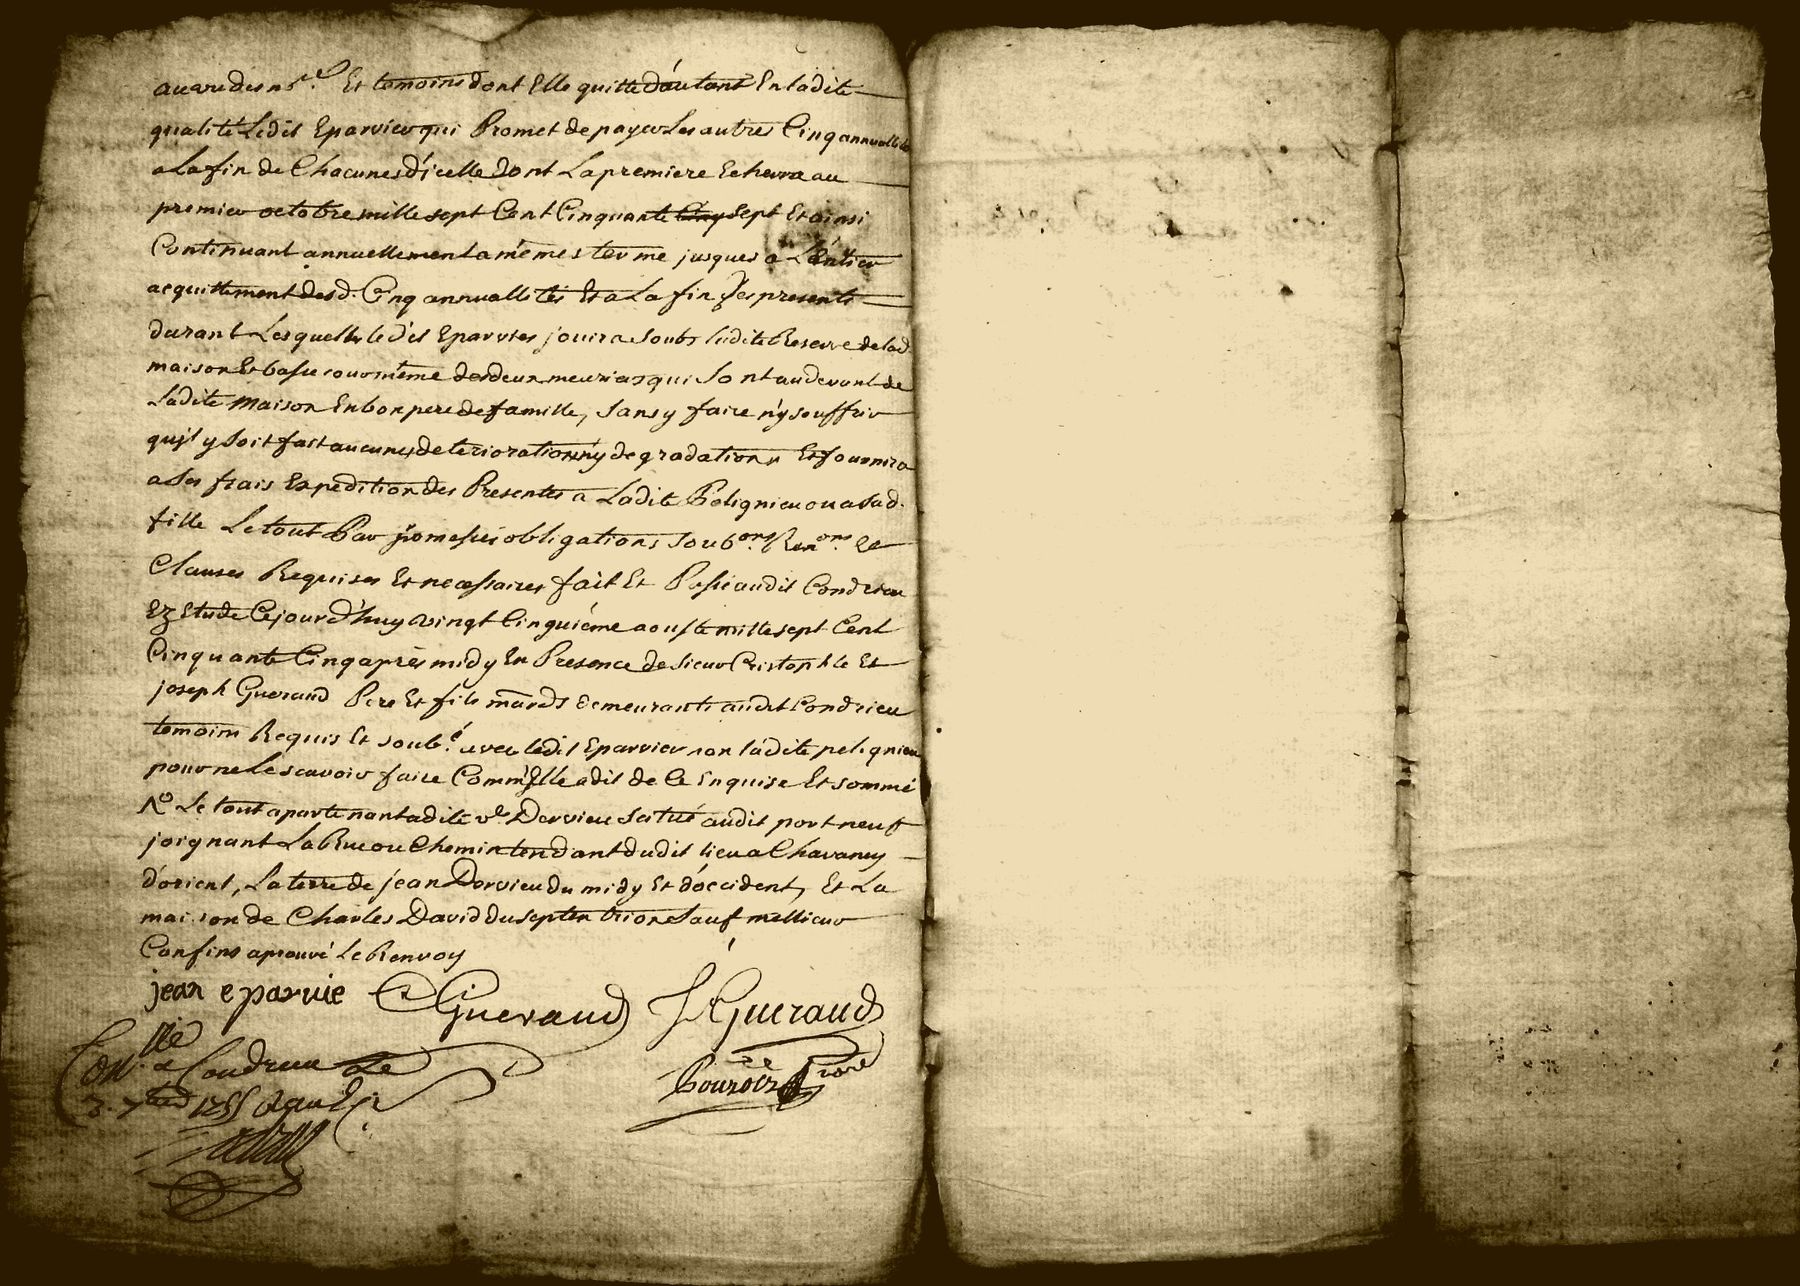 au vu de nous. re Et temoins dont Elle quitte d'autant En ladite
qualité Ledit Eparvier qui Promet de payer Les autres Cinq annuallités
a La fin de Chacunes d'icelle dont La premiere Echerra au
premier octobre mille sept Cent Cinquante Cinq sept Et ainsi
Continuant annuellement a mêmes terme jusques a L'entier
acquittement desd. Cinq annuallités Et a La fin des presents
durant Lesquelles le dit Eparvier jouira soubs ladite Reserve de lad.
maison Et basse cour même des deux meuriers qui sont au devant de
Ladite maison En bon pere de famille, sans y faire n'y souffrir
qu'jl y soit fait aucunes deteriorations n'y degradations Et fournira
a ses frais Expedition des Presentes a Ladite Pelignieu ou a sad.
fille Le tout Par promesses obligations soub.ons Ren.ons Et
Clauses Requises Et necessaires fait Et Passé audit Condrieu
Ez Etude Cejourd'huy vingt Cinquiéme aouste mille sept Cent
Cinquante Cinq aprés midy En Presence de sieur Cristophle Et
joseph Gueraud Pere Et fils mards demeurants audit Condrieu
temoins Requis Et soub.é avec ledit Eparvier non ladite pelignieu
pour ne Le scavoir faire Comm'Elle a dit de Ce Enquise Et sommé
N.o Le tout apartenant adite v.e Dervieu situé audit port neuf
joignant La Rue ou Chemin tendant dudit lieu a Chavaney
d'orient, La terre de jean Dervieu du midy Et d'occident, Et La
maison de Charles David du septentrion sauf mellieur
Confins aprouvé Le Renvoy
jean eparvie C Gueraud J Gueraud
Con.llé a Condrieu Le
3. 7bre 1755